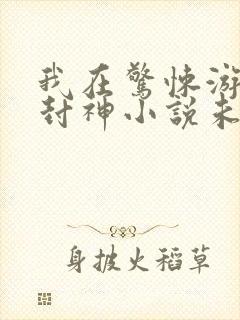 我在驚悚游
封神小說未
身披火稻草